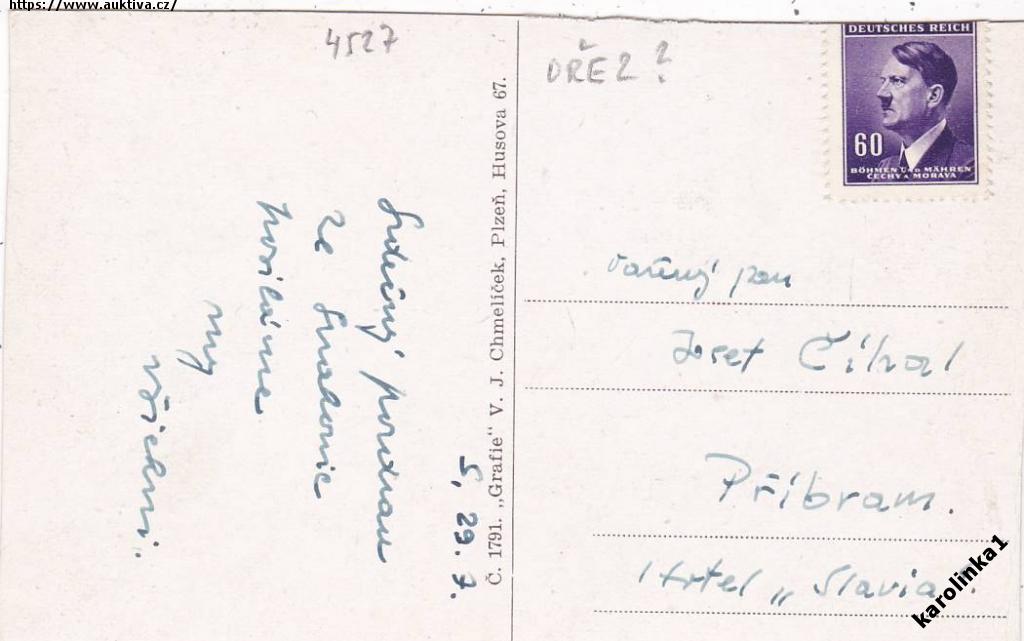 https://www.auktiva.cz/
4527
DŘEZ?
DEUTSCHES REICH
60
BÖHMEN UND MÄHREN
ČECHY A MORAVA
Srdečný pozdrav
ze Smradovic
posíláme
my
všichni.
S, 29. 7.
Č. 1791. „Grafie" V. J. Chmelíček, Plzeň, Husova 67.
Vážený pan
Josef Číhal
Příbram.
Hotel „Slavia".
karolinka1